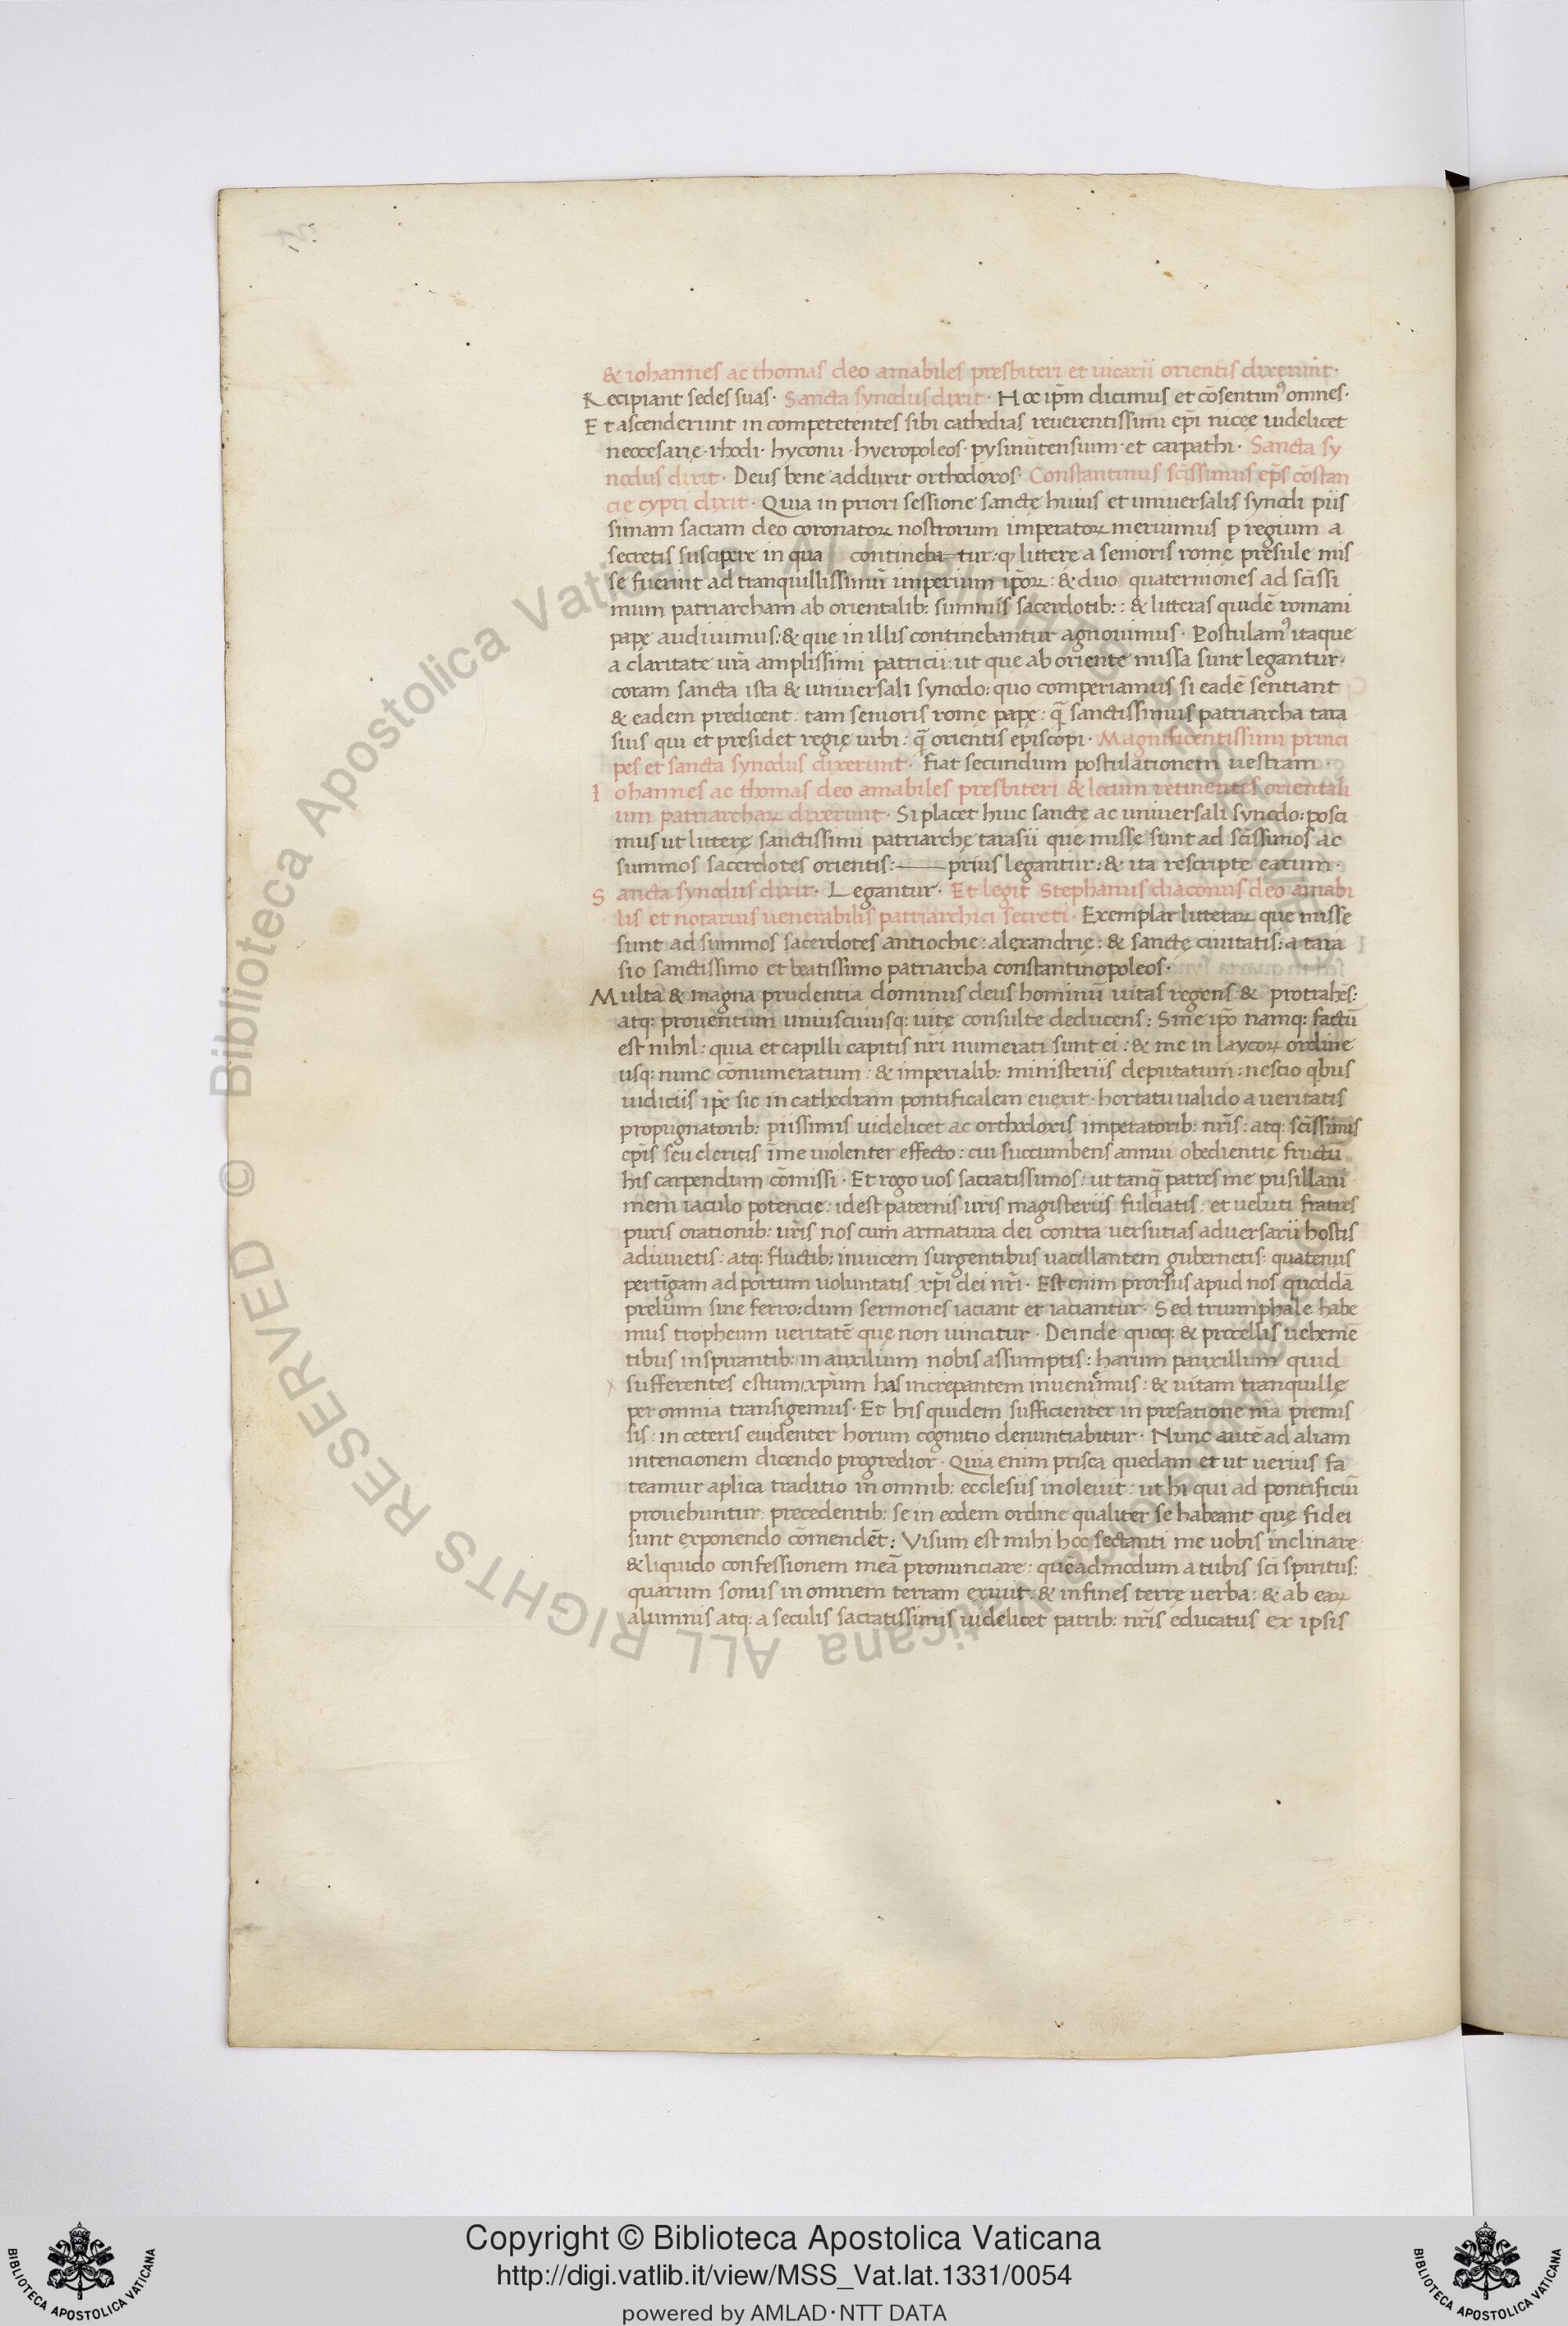 & iohannes ac thomas deo amabiles presbiteri et uicarii orientis dixerunt·
Recipiant sedes suas· Sancta synodus dixit· Hoc ip̄m dicimus et cōsentimꝰ omnes·
Et ascenderunt in competetentes sibi cathedras reuerentissimi ep̄i nicęe uidelicet
neocesarię· rhodi· hyconii· hyeropoleos· pysinūtensium· et carpathi· Sancta sy
nodus dixit· Deus bene adduxit orthodoxos· Constantinus sc̄issimus ep̄s cōstan
cię cypri dixit· Quia in priori sessione sanctę huius et uniuersalis synodi piis
simam sacram deo coronatoꝝ nostrorum imperatoꝝ meruimus p regium a
secretis suscipere in qua continebatur: ꝙ litterę a senioris romę presule mis
sę fuerint ad tranquillissimū imperium ip̄oꝝ: & duo quaterniones ad sc̄issi
mum patriarcham ab orientalib: summis sacerdotib:: & litteras quidē romani
papę audiuimus: & que in illis continebantur agnouimus· Postulamꝰ itaque
a claritate ur̄a amplissimi patricii: ut que ab oriente missa sunt legantur·
coram sancta ista & uniuersali synodo: quo comperiamus si eadē sentiant
& eadem predicent: tam senioris romę papę: q̄ sanctissimus patriarcha tara
sius qui et presidet regię urbi: q̄ orientis episcopi· Magnificentissimi princi
pes et sancta synodus dixerunt· Fiat secundum postulationem uestram·
Iohannes ac thomas deo amabiles presbiteri & locum retinentes orientali
um patriarchaꝝ dixerunt· Si placet huic sanctę ac uniuersali synodo: posci
mus ut litterę sanctissimi patriarchę tarasii quę missę sunt ad sc̄issimos ac
summos sacerdotes orientis: prius legantur: & ita rescripte earum·
Sancta synodus dixit· Legantur· Et legit Stephanus diaconus deo amabi
lis et notarius uenerabilis patriarchici secreti· Exemplar litteraꝝ que misse
sunt ad summos sacerdotes antiochię: alexandrię: & sanctę ciuitatis: a tara
sio sanctissimo et beatissimo patriarcha constantinopoleos·
Multa & magna prudentia dominus deus hominū uitas regens & protrahēs:
atq: prouentum uniuscuiusq: uitę consulte deducens: Sine ip̄o namq: factū
est nihil: quia et capilli capitis nr̄i numerati sunt ei: & me in laycoꝝ ordine
usq: nunc cōnumeratum: & imperialib: ministeriis deputatum: nescio qbus
iudiciis ip̄e sic in cathedram pontificalem euexit· hortatu ualido a ueritatis
propugnatorib: piissimis uidelicet ac orthodoxis imperatorib: nr̄is: atq: sc̄issimis
ep̄is seu clericis īme uiolenter effecto: cui succumbens annui obedientię fructū
his carpendum cōmissi· Et rogo uos sacratissimos: ut tanq̄ patres me pusillani
mem iaculo potencię: idest paternis ur̄is magisteriis fulciatis: et ueluti fratres
puris orationib: ur̄is nos cum armatura dei contra uersutias aduersarii hostis
adiuuetis: atq: fluctib: inuicem surgentibus uacillantem gubernetis: quatenus
pertīgam ad portum uoluntatis xp̄i dei nr̄i· Est enim prorsus apud nos quoddā
prelium sine ferro: dum sermones iaciant et iaciantur· Sed triumphale habe
mus tropheum ueritatē quę non uincitur· Deinde quoq: & procellis uehemē
tibus inspirantib: in auxilium nobis assumptis: harum pauxillum quid
sufferentes estum/xp̄um has increpantem inueniemus: & uitam tranquillę
per omnia transigemus· Et his quidem sufficienter in prefatione nr̄a premis
sis: in ceteris euidenter horum cognitio denuntiabitur· Nunc autē ad aliam
intencionem dicendo progredior· Quia enim prisca quedam et ut uerius fa
teamur aplica traditio in omnib: ecclesiis inoleuit: ut hi qui ad pontificiū
prouehuntur precedentib: se in eodem ordine qualiter se habeant quę fidei
sunt exponendo cōmendēt: Visum est mihi hoc sectanti me uobis inclinare
& liquido confessionem meā pronunciare: queadmodum a tubis sc̄i spiritus:
quarum sonus in omnem terram exiuit: & in fines terrę uerba: & ab eaꝝ
alumnis atq: a seculis sacratissimis uidelicet patrib: nr̄is educatus ex ipsis
© Biblioteca Apostolica Vaticana ALL RIGHTS RESERVED
Copyright © Biblioteca Apostolica Vaticana
http://digi.vatlib.it/view/MSS_Vat.lat.1331/0054
powered by AMLAD·NTT DATA
BIBLIOTECA APOSTOLICA VATICANA
BIBLIOTECA APOSTOLICA VATICANA